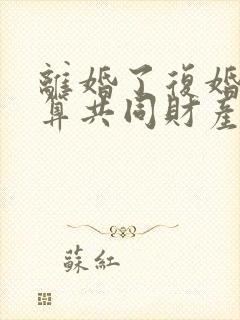 離婚了復婚
算共同財產
蘇紅